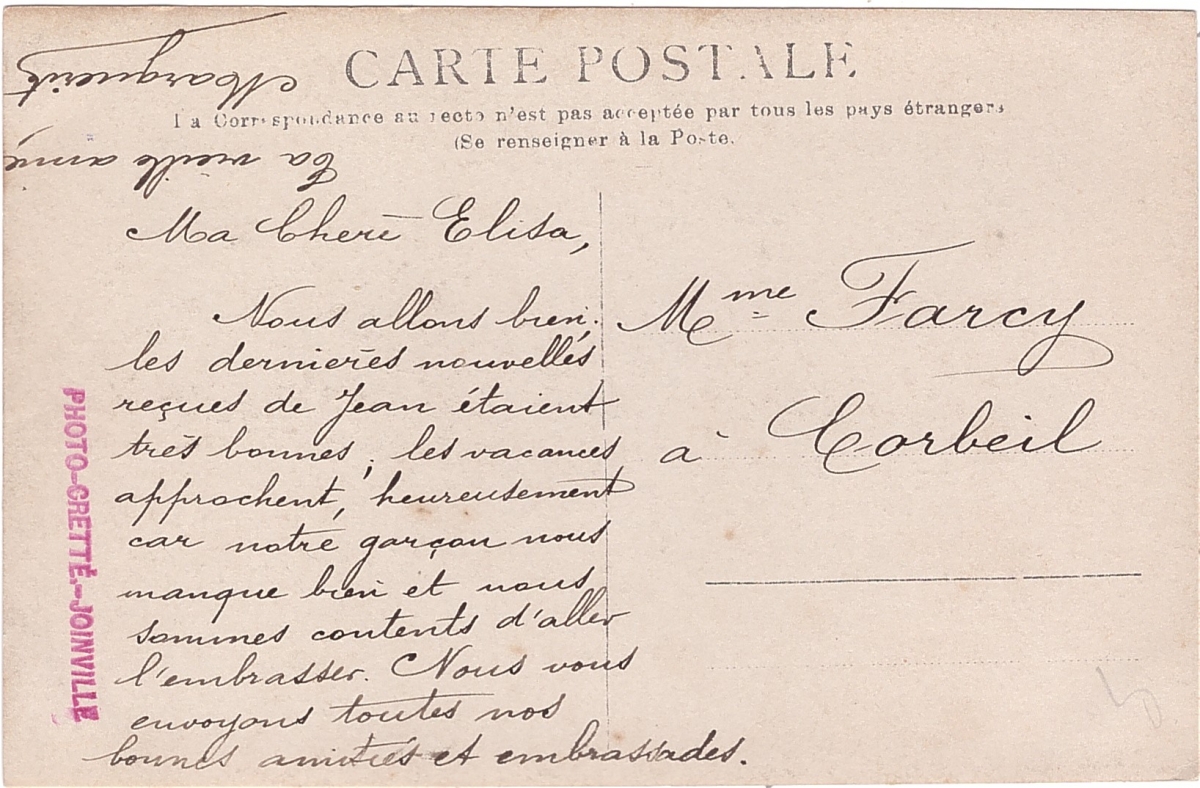 CARTE POSTALE
La Correspondance au recto n'est pas acceptée par tous les pays étrangers
(Se renseigner à la Poste.
Ma Chère Elisa,
Nous allons bien;
les dernières nouvelles
reçues de Jean étaient
très bonnes; les vacances
approchent, heureusement
car notre garçon nous
manque bien et nous
sommes contents d'aller
l'embrasser. Nous vous
envoyons toutes nos
bonnes amitiés et embrassades.
Ta vieille amie
Marguerite
Mme Farcy
à Corbeil
PHOTO-CRETTÉ.-JOINVILLE